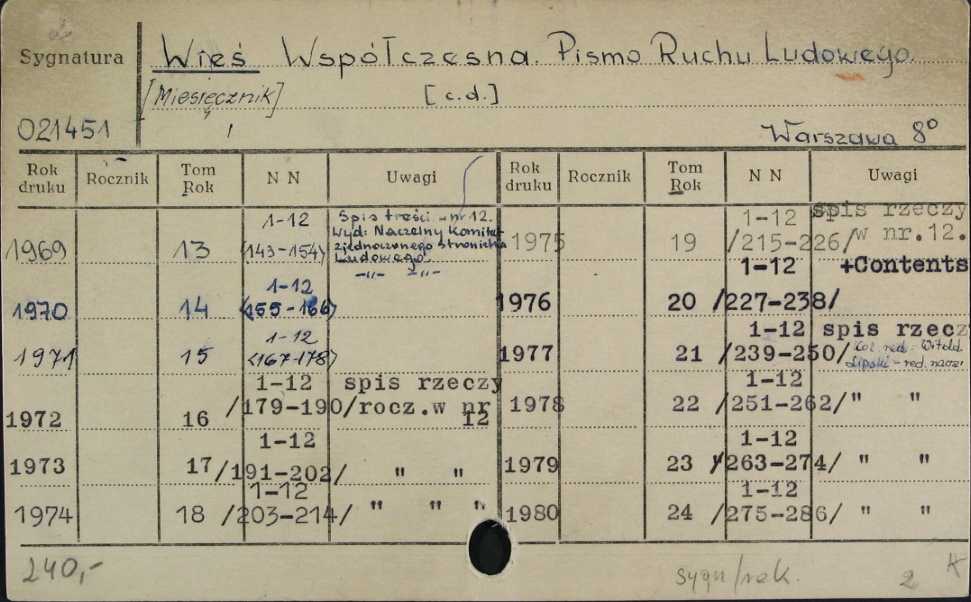 Sygnatura
Wieś Współczesna. Pismo Ruchu Ludowego.
[Miesięcznik] [c.d.]
021451
Warszawa 8°
Rok druku Rocznik Tom Rok N N Uwagi Rok druku Rocznik Tom Rok N N Uwagi
1969 13 1-12 (143-154) Spis treści w nr 12. Wyd: Naczelny Komitet zjednoczonego stronictwa Ludowego
-"- -"-
1970 14 1-12 (155-166)
1971 15 1-12 <167-178>
1972 16 1-12 /179-190/ spis rzeczy rocz.w nr 12
1973 17 1-12 /191-202/ " "
1974 18 1-12 /203-214/ " " "
1975 19 1-12 /215-226/ spis rzeczy w nr.12.
1976 20 1-12 /227-238/ +Contents
1977 21 1-12 /239-250/ spis rzeczy Kol. red. Witold Lipski - red. nacz.
1978 22 1-12 /251-262/ " "
1979 23 1-12 /263-274/ " "
1980 24 1-12 /275-286/ " "
240,-
sygn/rok.
2 K